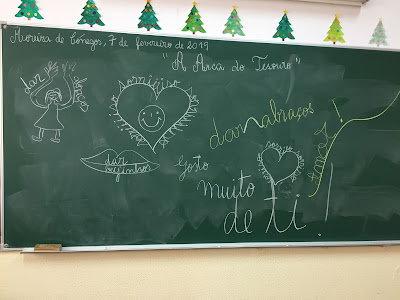 Moreira de Cónegos, 7 de fevereiro de 2019
"A Arca do Tesouro"
dar
sorrisos
dar abraços
amor!
dar
beijinhos
Gosto
muito
de ti!
sorriso